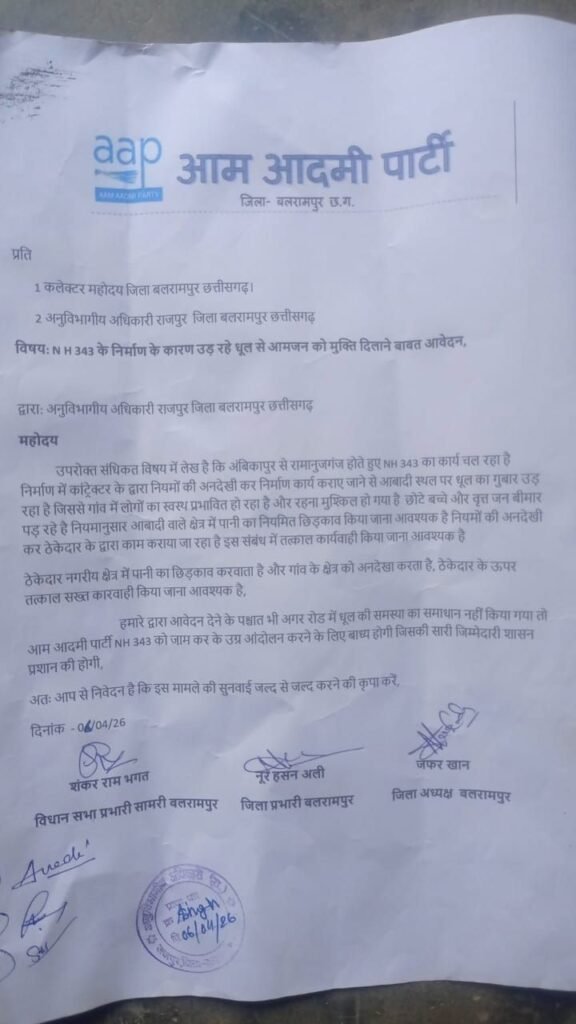 aap
AAM AADMI PARTY
आम आदमी पार्टी
जिला- बलरामपुर छ.ग.
प्रति
1 कलेक्टर महोदय जिला बलरामपुर छत्तीसगढ़।
2 अनुविभागीय अधिकारी राजपुर जिला बलरामपुर छत्तीसगढ़
विषय: N H 343 के निर्माण के कारण उड़ रहे धूल से आमजन को मुक्ति दिलाने बाबत आवेदन,
द्वारा: अनुविभागीय अधिकारी राजपुर जिला बलरामपुर छत्तीसगढ़
महोदय
उपरोक्त संधिकत विषय में लेख है कि अंबिकापुर से रामानुजगंज होते हुए NH 343 का कार्य चल रहा है
निर्माण में कांट्रेक्टर के द्वारा नियमों की अनदेखी कर निर्माण कार्य कराए जाने से आबादी स्थल पर धूल का गुबार उड़
रहा है जिससे गांव में लोगों का स्वस्थ प्रभावित हो रहा है और रहना मुश्किल हो गया है छोटे बच्चे और वृत्त जन बीमार
पड़ रहे है नियमानुसार आबादी वाले क्षेत्र में पानी का नियमित छिड़काव किया जाना आवश्यक है नियमों की अनदेखी
कर ठेकेदार के द्वारा काम कराया जा रहा है इस संबंध में तत्काल कार्यवाही किया जाना आवश्यक है
ठेकेदार नगरीय क्षेत्र में पानी का छिड़काव करवाता है और गांव के क्षेत्र को अनदेखा करता है, ठेकेदार के ऊपर
तत्काल सख्त कारवाही किया जाना आवश्यक है,
हमारे द्वारा आवेदन देने के पश्चात भी अगर रोड में धूल की समस्या का समाधान नहीं किया गया तो
आम आदमी पार्टी NH 343 को जाम कर के उग्र आंदोलन करने के लिए बाध्य होगी जिसकी सारी जिम्मेदारी शासन
प्रशान की होगी,
अतः आप से निवेदन है कि इस मामले की सुनवाई जल्द से जल्द करने की कृपा करें,
दिनांक - 06/04/26
शंकर राम भगत नूरे हसन अली जफर खान
विधान सभा प्रभारी सामरी बलरामपुर जिला प्रभारी बलरामपुर जिला अध्यक्ष बलरामपुर
06/04/26